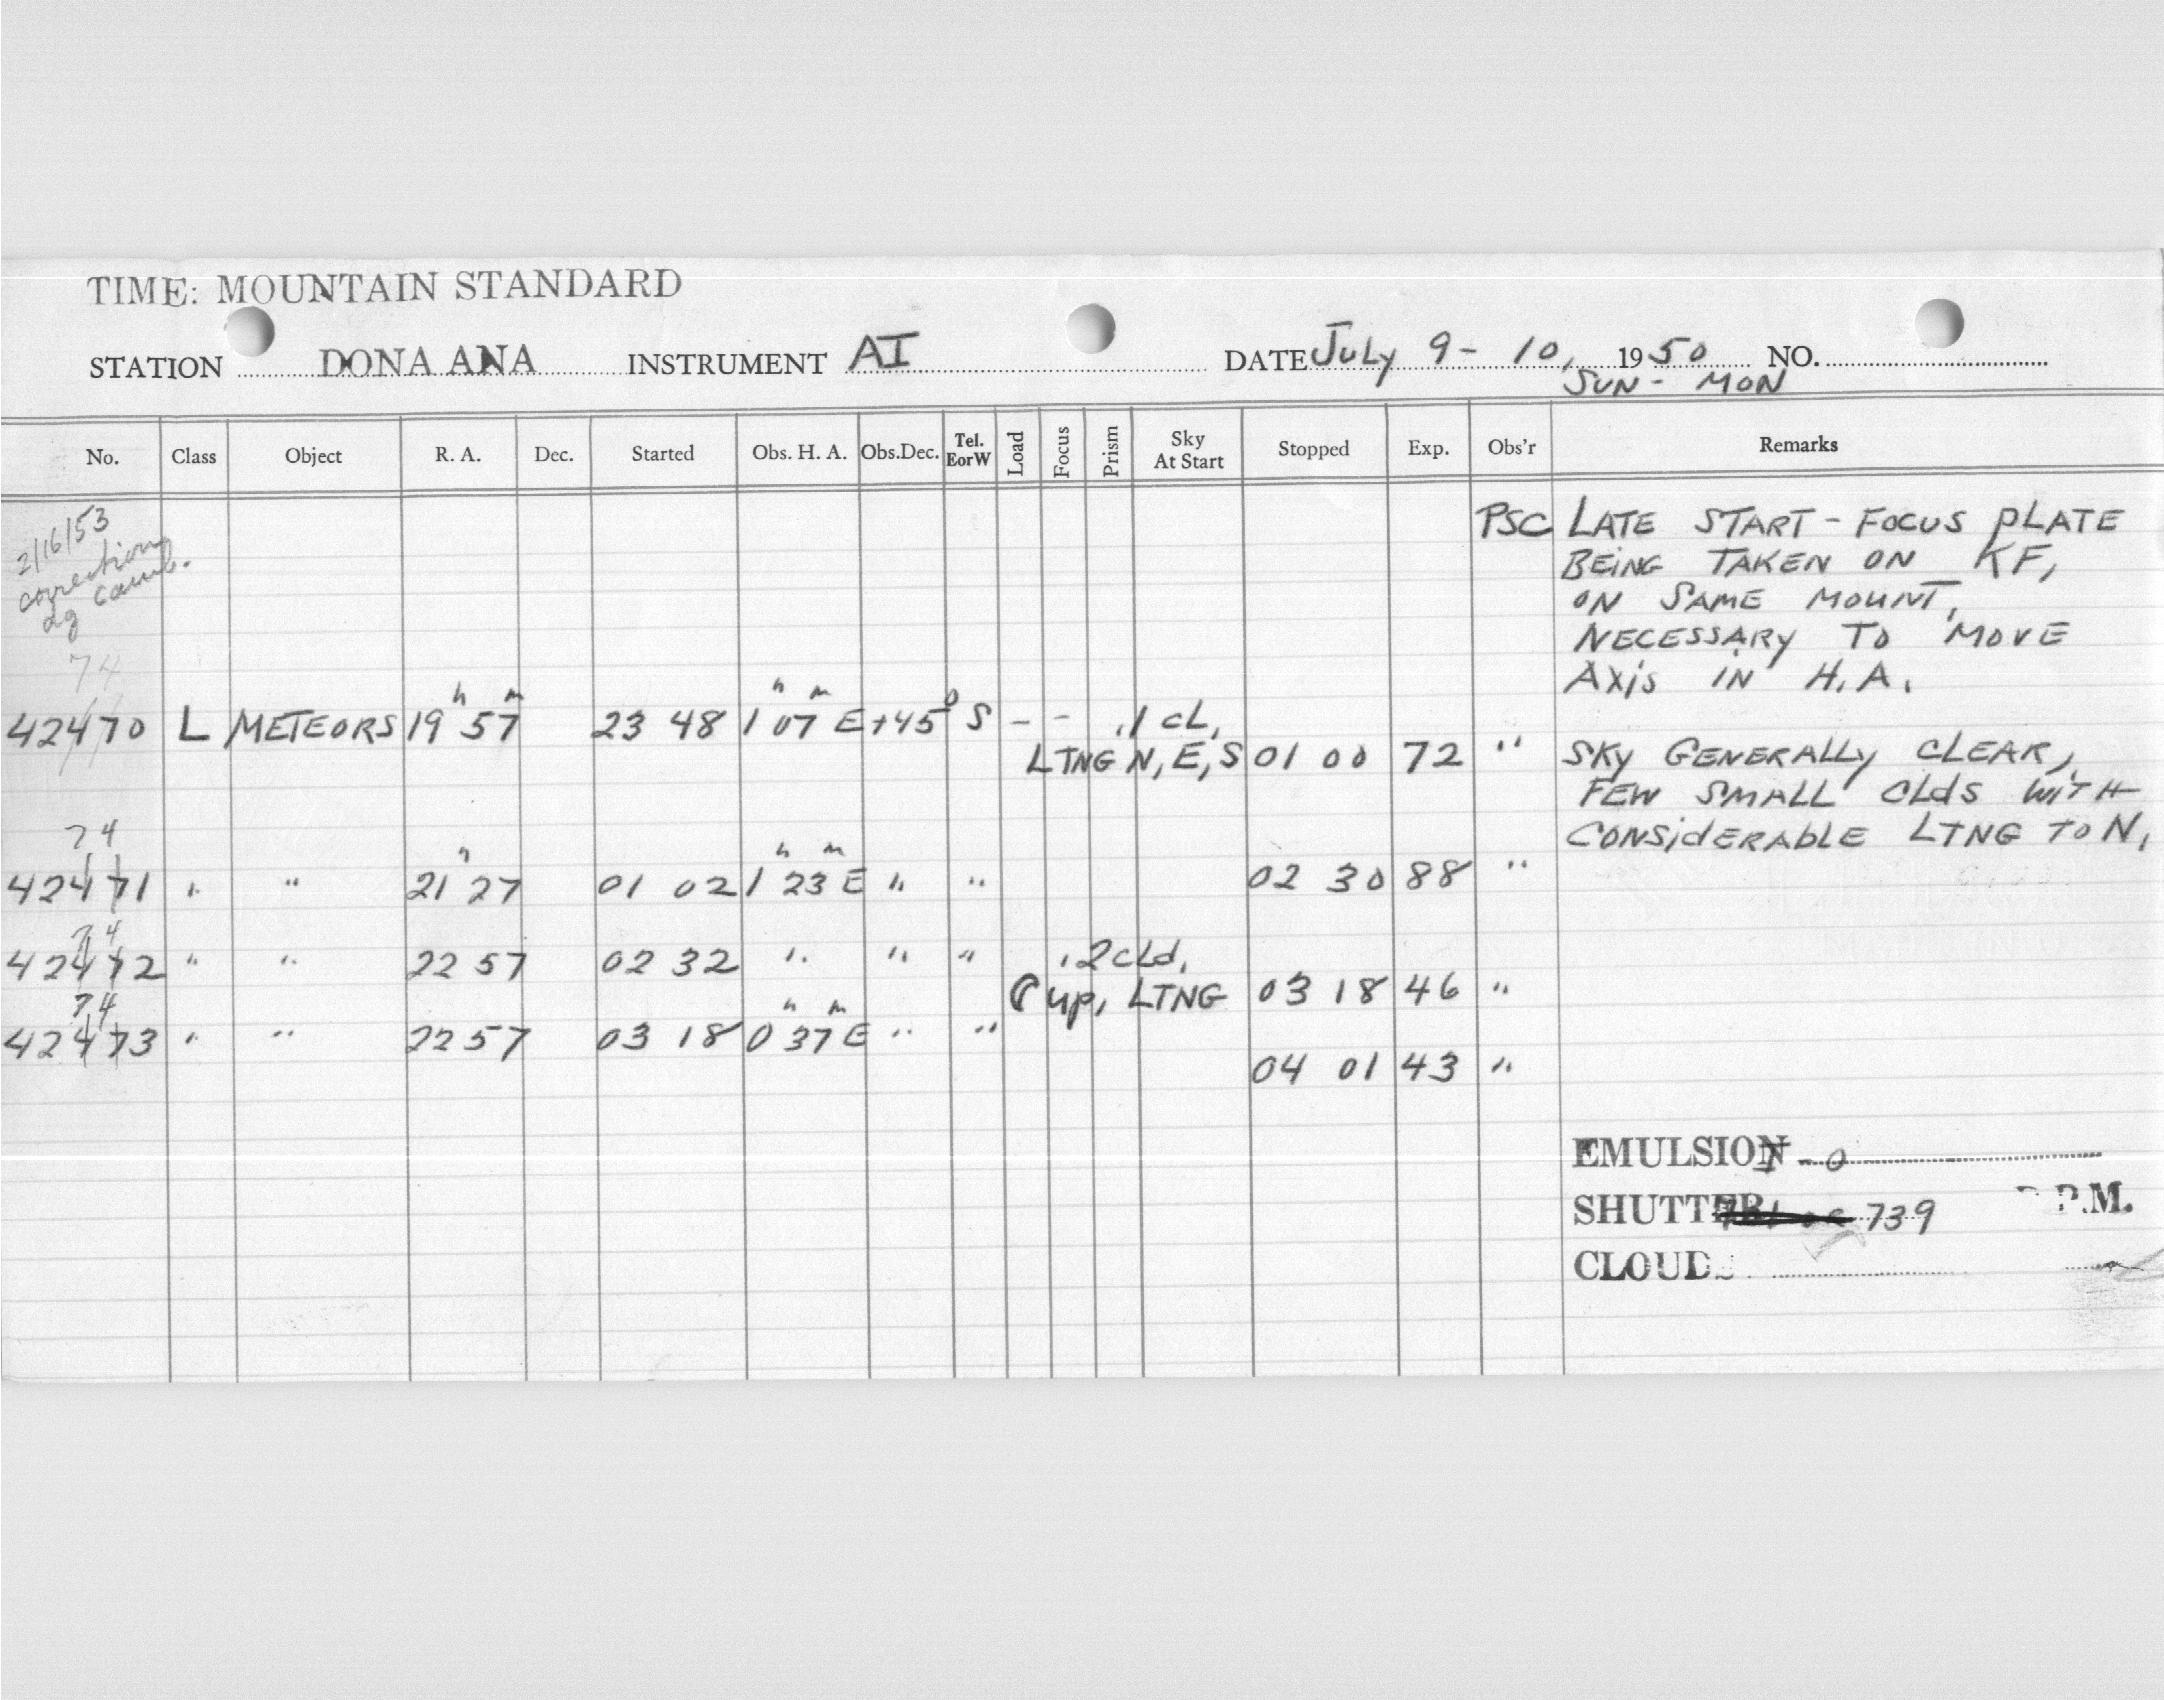 TIME: MOUNTAIN STANDARD
STATION DONA ANA INSTRUMENT AI DATE July 9 - 10, 1950 NO.
SUN - MON
No. Class Object R. A. Dec. Started Obs. H. A. Obs.Dec. Tel. EorW Load Focus Prism Sky At Start Stopped Exp. Obs'r Remarks
2/16/53
correction
dg camb.
PSC LATE START - FOCUS PLATE
BEING TAKEN ON KF,
ON SAME MOUNT,
NECESSARY TO MOVE
AXIS IN H.A.
74
42470 L METEORS 19h 57m 23 48 1h 07m E +45° S - - .1 CL,
LTNG N, E, S 01 00 72 " SKY GENERALLY CLEAR,
FEW SMALL CLDS WITH
CONSIDERABLE LTNG TO N,
74
42471 " " 21h 27 01 02 1h 23m E " " 02 30 88 "
74
42472 " " 22 57 02 32 " " " .2 cld,
up, LTNG 03 18 46 "
74
42473 " " 22 57 03 18 0h 37m E " " 04 01 43 "
EMULSION I-O
SHUTTER 739 R.P.M.
CLOUDS